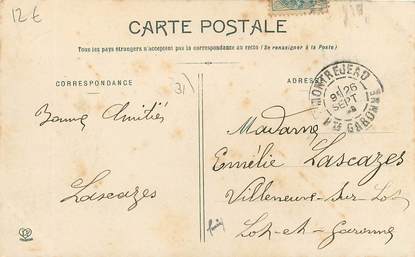 12 €
CARTE POSTALE
Tous les pays étrangers n'acceptent pas la correspondance au recto (Se renseigner à la Poste)
CORRESPONDANCE
31)
ADRESSE
MONTREJEAU
26
SEPT
Hte GARONNE
Bonnes Amitiés
Lascazes
Madame
Emélie Lascazes
Villeneuve-sur-Lot
Lot-et-Garonne